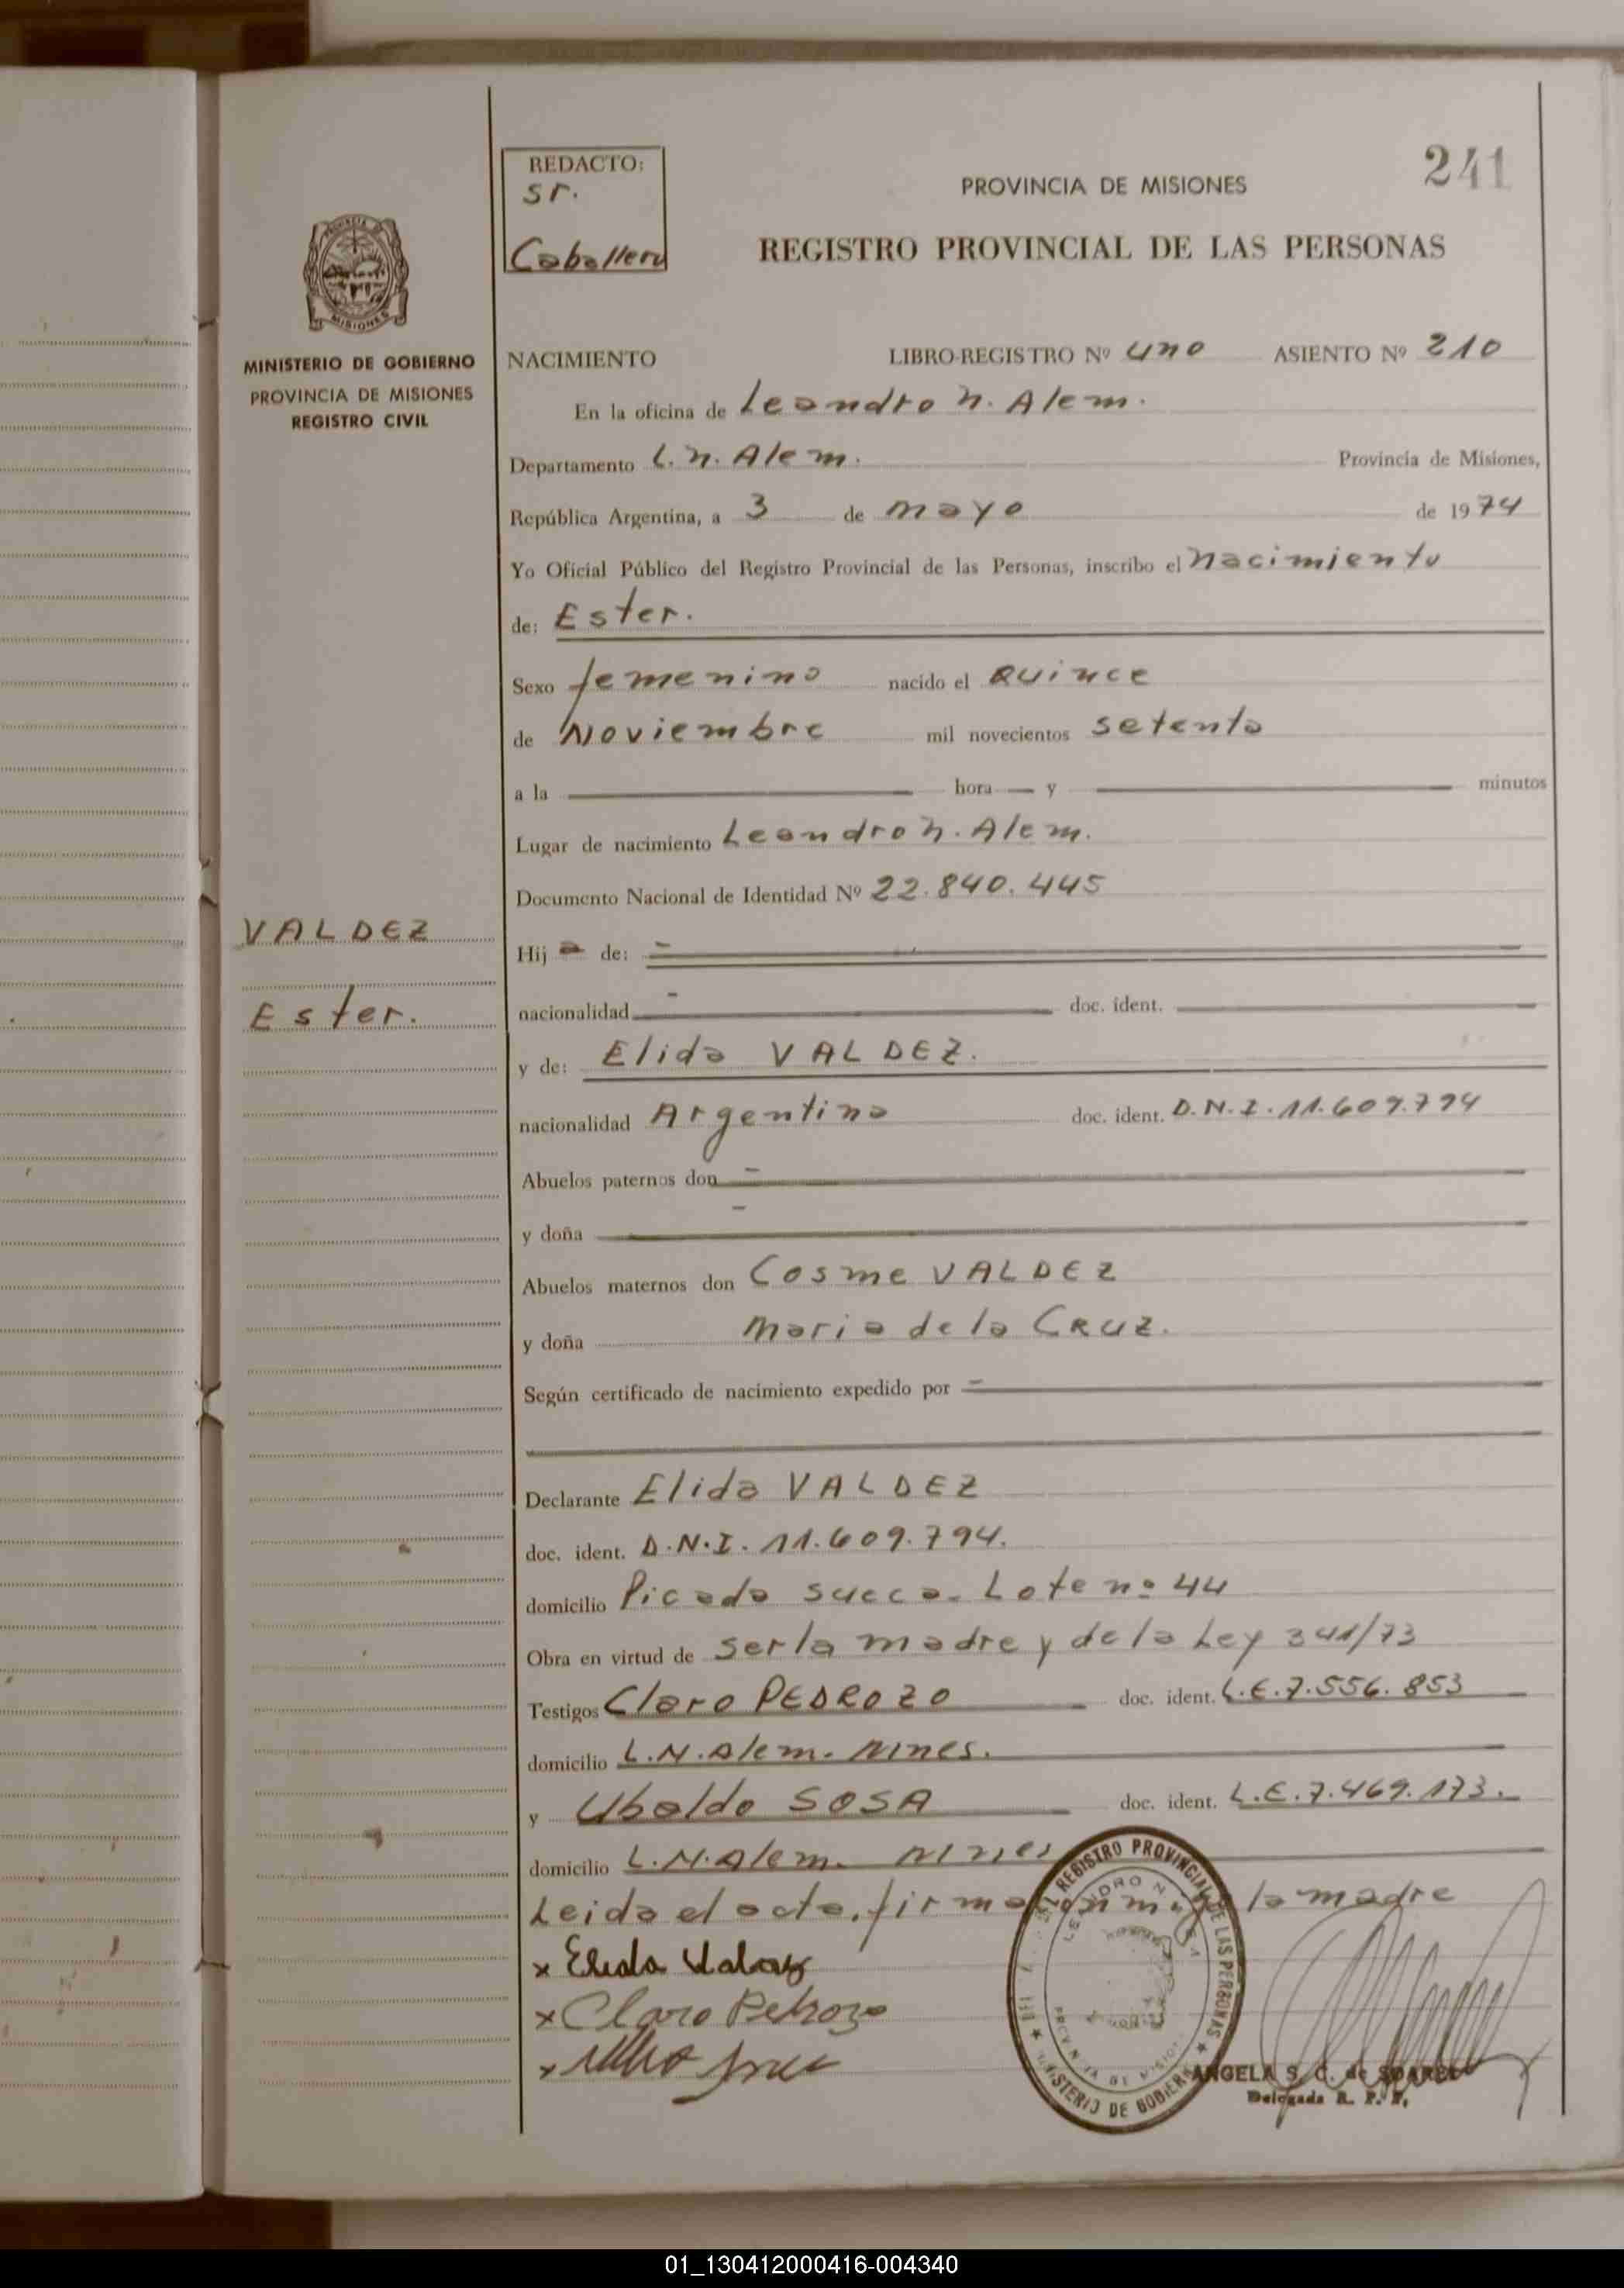 241
REDACTO:
sr.
Caballero
PROVINCIA DE MISIONES
REGISTRO PROVINCIAL DE LAS PERSONAS
MISIONES
MINISTERIO DE GOBIERNO
PROVINCIA DE MISIONES
REGISTRO CIVIL
NACIMIENTO LIBRO-REGISTRO Nº uno ASIENTO Nº 210
En la oficina de Leandro N. Alem.
Departamento L. N. Alem. Provincia de Misiones,
República Argentina, a 3 de mayo de 1974
Yo Oficial Público del Registro Provincial de las Personas, inscribo el nacimiento
de: Ester.
Sexo femenino nacido el Quince
de Noviembre mil novecientos setenta
a la hora y minutos
Lugar de nacimiento Leandro N. Alem.
Documento Nacional de Identidad Nº 22.840.445
VALDEZ
Ester.
Hij a de:
nacionalidad doc. ident.
y de: Elida VALDEZ.
nacionalidad Argentina doc. ident. D.N.I. 11.609.794
Abuelos paternos don
y doña
Abuelos maternos don Cosme VALDEZ
y doña Maria de la CRUZ.
Según certificado de nacimiento expedido por
Declarante Elida VALDEZ
doc. ident. D.N.I. 11.609.794.
domicilio Picada sueca. Lote nº 44
Obra en virtud de ser la madre y de la Ley 341/73
Testigos Claro PEDROZO doc. ident. L.E. 7.556.853
domicilio L.N. Alem. Mnes.
y Ubaldo SOSA doc. ident. L.E. 7.469.173.
domicilio L.N. Alem. Mnes
Leida el acta, firma la madre
x Elida Valdez
x Claro Pedrozo
x
REGISTRO PROVINCIAL DE LAS PERSONAS
MINISTERIO DE GOBIERNO
ANGELA S. C. de SOAREZ
Delegada R. P. P.
01_130412000416-004340